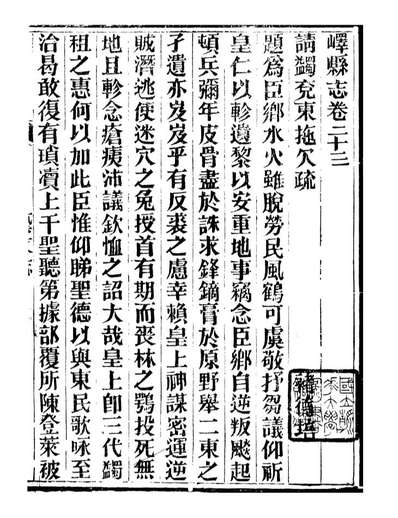 嶧縣志卷二十三
請蠲兗東拖欠疏
題為臣鄉水火雖脫勞民風鶴可虞敬抒芻議仰祈
皇仁以軫遺黎以安重地事竊念臣鄉自逆叛颷起
頓兵彌年皮骨盡於誅求鋒鏑膏於原野舉二東之
孑遺亦岌岌乎有反裘之慮幸賴皇上神謀密運逆
賊潛逃使迷穴之兔授首有期而喪林之鴞投死無
地且軫念瘡痍沛議欽恤之詔大哉皇上卽三代蠲
租之惠何以加此臣惟仰睇聖德以與東民歌咏至
治曷敢復有瑣瀆上千聖聽第據部覆所陳登萊被